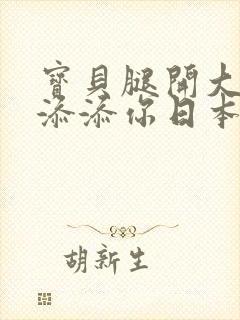 寶貝腿開大
添添你日本
胡新生